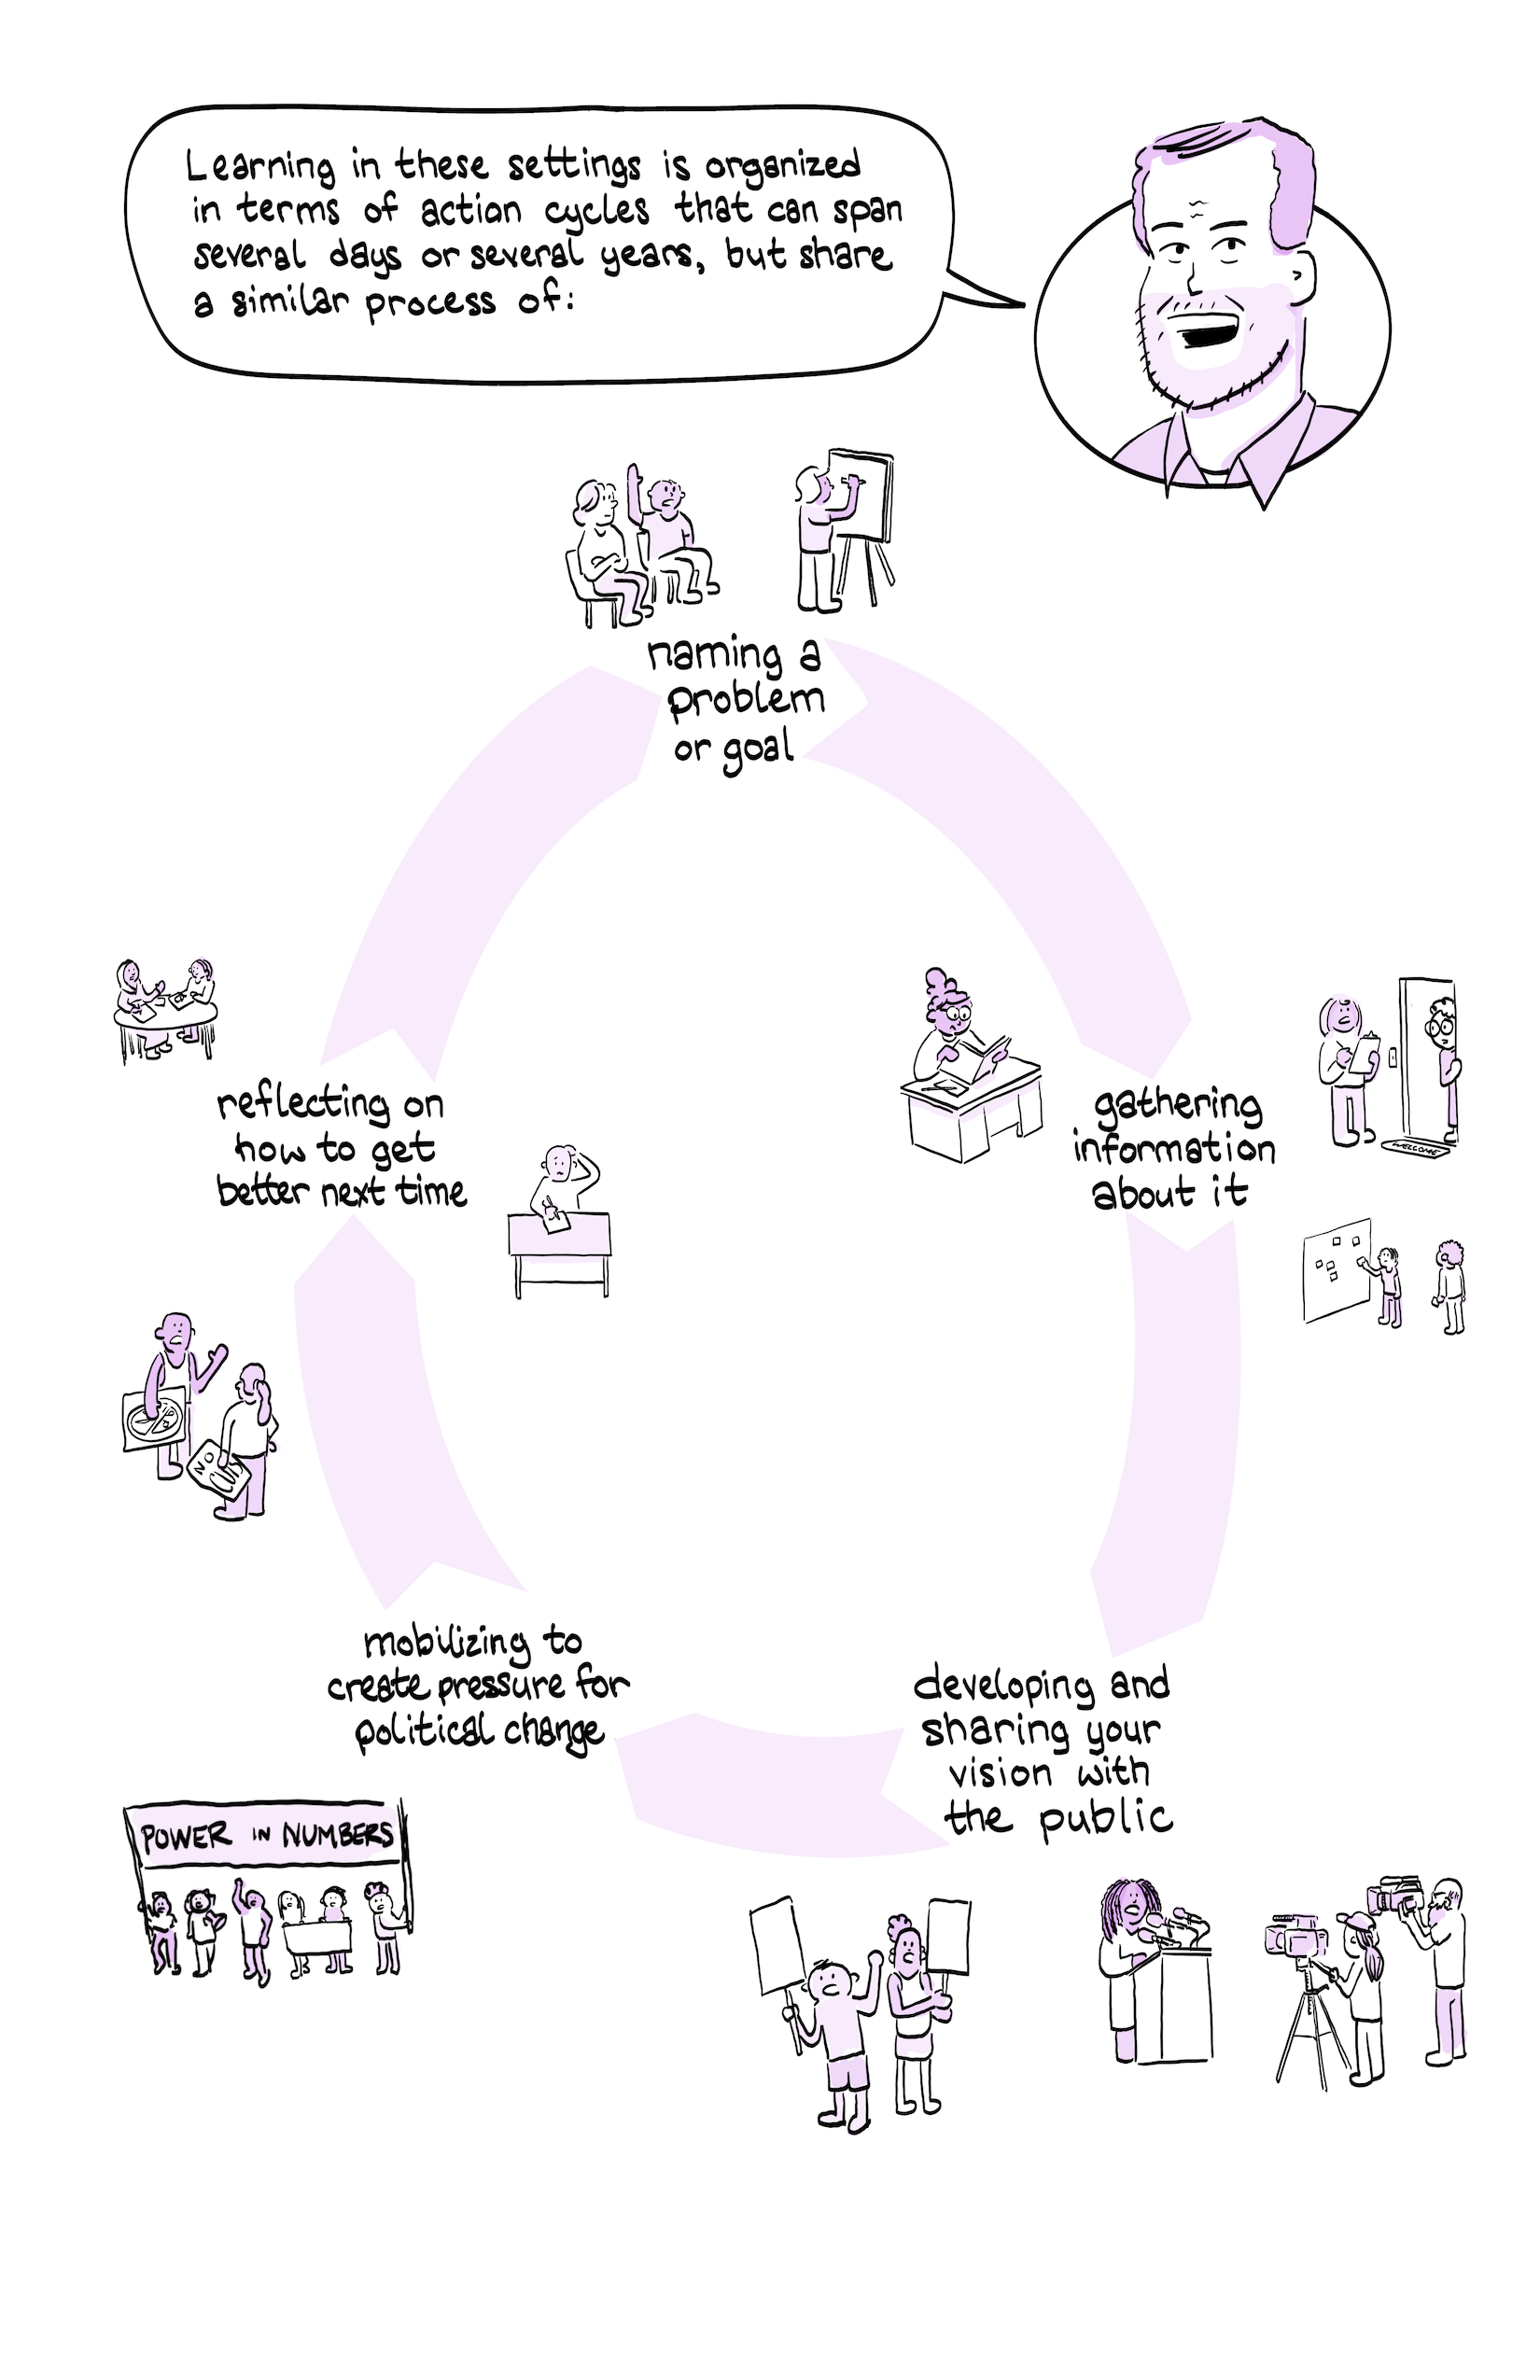 Learning in these settings is organized
in terms of action cycles that can span
several days or several years, but share
a similar process of:
naming a
problem
or goal
gathering
information
about it
WELCOME
developing and
sharing your
vision with
the public
mobilizing to
create pressure for
political change
POWER IN NUMBERS
reflecting on
how to get
better next time
NO